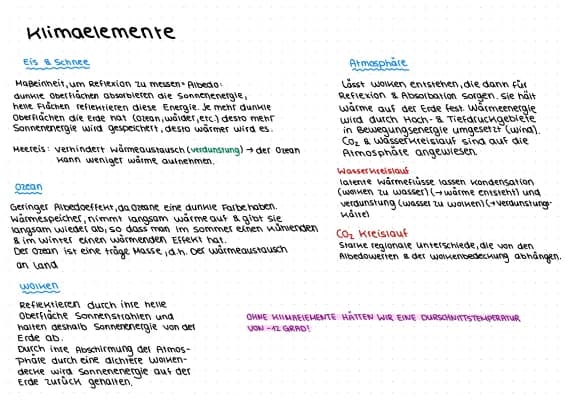 Klimaelemente
Eis & Schnee
Maßeinheit, um Reflexion zu messen = Albedo:
dunkle Oberflächen absorbieren die Sonnenenergie,
helle Flächen reflektieren diese Energie. Je mehr dunkle
Oberflächen die Erde hat (Ozean, Wälder, etc.) desto mehr
Sonnenenergie wird gespeichert, desto wärmer wird es.
Meereis: verhindert Wärmeaustausch (Verdunstung) → der Ozean
kann weniger Wärme aufnehmen.
Ozean
Geringer Albedoeffekt, da Ozeane eine dunkle Farbe haben.
Wärmespeicher, nimmt langsam Wärme auf & gibt sie
langsam wieder ab, so dass man im Sommer einen kühlenden
& im Winter einen wärmenden Effekt hat.
Der Ozean ist eine träge Masse, d.h. Der Wärmeaustausch
an Land
Wolken
Reflektieren durch ihre helle
Oberfläche Sonnenstrahlen und
halten deshalb Sonnenenergie von der
Erde ab.
Durch ihre Abschirmung der Atmos-
phäre durch eine dichtere Wolken-
decke wird Sonnenenergie auf der
Erde zurück gehalten.
Atmosphäre
Lässt Wolken entstehen, die dann für
Reflexion & Absorbation sorgen. Sie hält
Wärme auf der Erde fest. Wärmeenergie
wird durch Hoch- & Tiefdruckgebiete
in Bewegungsenergie umgesetzt (Wind).
CO₂ & Wasserkreislauf sind auf die
Atmosphäre angewiesen.
Wasserkreislauf
latente Wärmeflüsse lassen Kondensation
(Wolken zu Wasser) (→ Wärme entsteht) und
Verdunstung (Wasser zu Wolken) (→ Verdunstung-
Kälte)
CO₂ Kreislauf
Starke regionale Unterschiede, die von den
Albedowerten & der Wolkenbedeckung abhängen.
OHNE KLIMAELEMENTE HÄTTEN WIR EINE DURSCHNITTSTEMPERATUR
VON -12 GRAD!